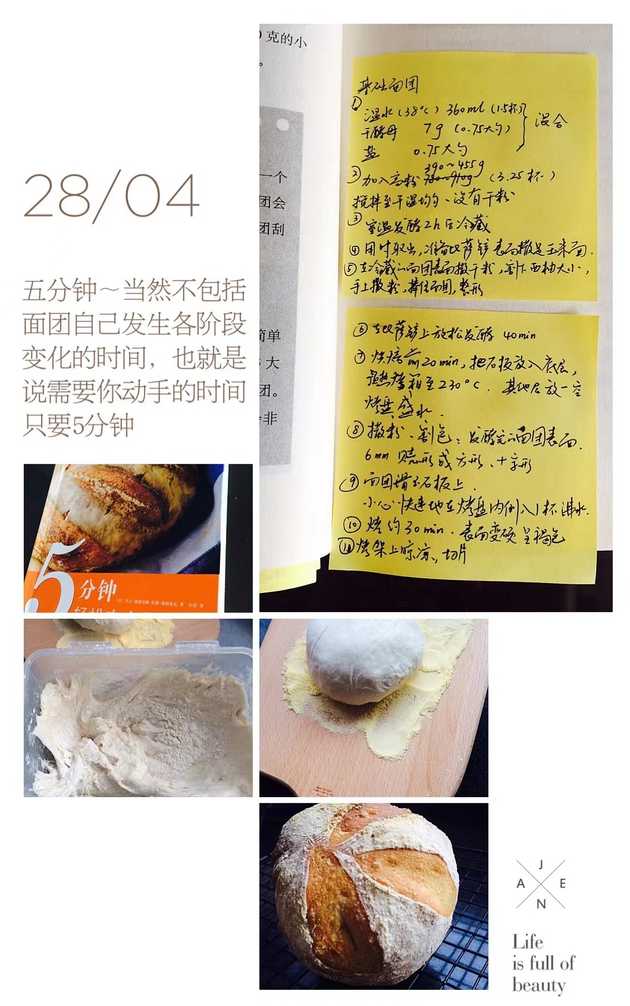 28/04
五分钟～当然不包括
面团自己发生各阶段
变化的时间，也就是
说需要你动手的时间
只要5分钟
克的小
。
一个
团会
团刮
简单
大
团。
非
基础面团
① 温水(38°C) 360ml (1.5杯)
干酵母 7g (0.75大勺)
盐 0.75大勺
混合
390~455g
② 加入高粉 (3.25杯)
搅拌至干湿均匀、没有干粉
③ 室温发酵2h后冷藏
④ 用时取出,准备比萨铲表面撒玉米面.
⑤ 在冷藏的面团表面撒干粉,割下西柚大小,
手上撒粉,揉面团,整形
⑥ 在比萨铲上放松发酵 40min
⑦ 烘焙前20min,把石板放入底层,
预热烤箱至230°C. 其他层放一空
烤盘盛水.
⑧ 撒粉、割包:发酵完的面团表面.
6mm 贝壳形或方形、十字形
⑨ 面团滑到石板上.
小心快速地在烤盘内倒入1杯沸水.
⑩ 烤约30min.表面变硬呈褐色
⑪ 烤架上晾凉,切片
5分钟
J
A E
N
Life
is full of
beauty